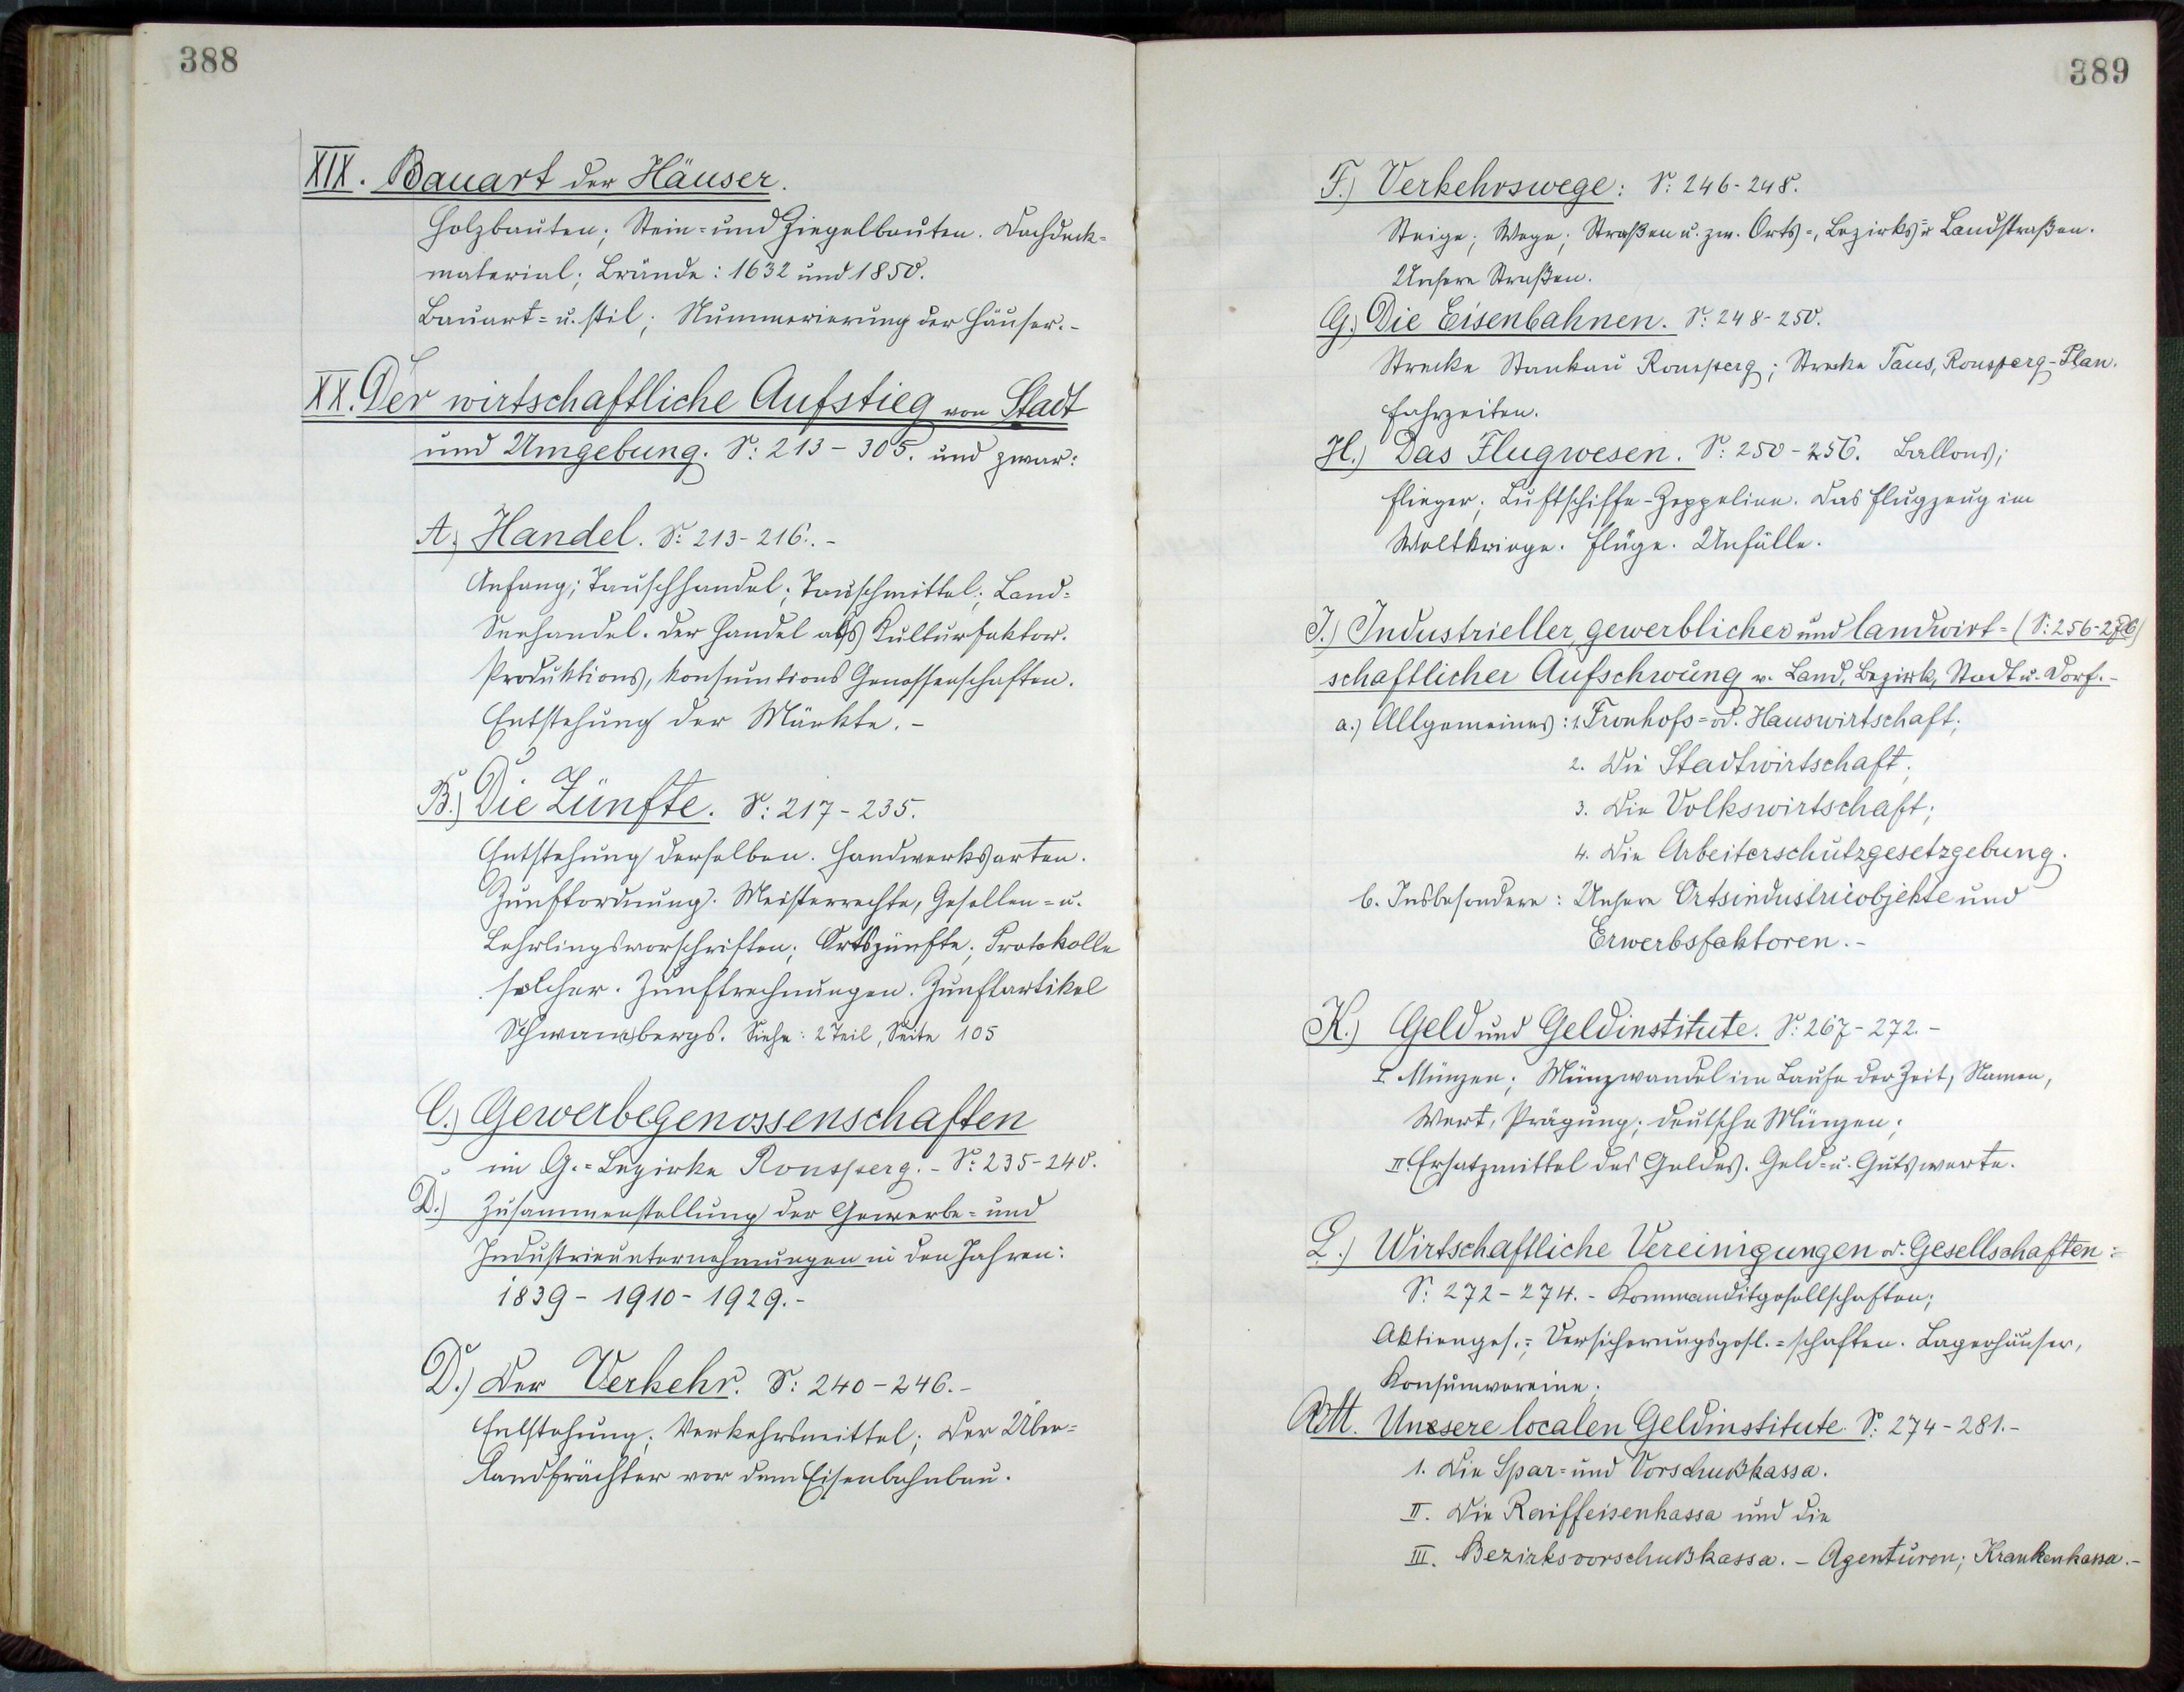 388
XIX. Bauart der Häuser.
Holzbauten; Stein= und Ziegelbauten. Dachdeck=
material; Brände: 1632 und 1850.
Bauart= u. stil; Nummerierung der Häuser.-
XX. Der wirtschaftliche Aufstieg von Stadt
und Umgebung. S: 213 - 305. und zwar:
A.) Handel. S: 213-216.-
Anfang; Tauschhandel; Tauschmittel; Land=
Seehandel. Der Handel als Kulturfaktor.
Produktions, Konsumtions Genossenschaften.
Entstehung der Märkte.-
B.) Die Zünfte. S: 217-235.
Entstehung derselben. Handwerksarten.
Zunftordnung. Meisterrechte, Gesellen= u.
Lehrlingsvorschriften; Ortszünfte; Protokolle
solcher. Zunftrechnungen. Zunftartikel
Schwambergs. Siehe: 2 Teil, Seite 105
C.) Gewerbegenossenschaften
im G.=Bezirke Ronsperg.- S: 235-240.
D.) Zusammenstellung der Gewerbe= und
Industrieunternehmungen in den Jahren:
1839 - 1910 - 1929.-
D.) Der Verkehr. S: 240-246.-
Entstehung; Verkehrsmittel; Der Über=
landfrächter vor dem Eisenbahnbau.
389
F.) Verkehrswege: S: 246-248.
Steige; Wege; Straßen u. zw. Orts=, Bezirks= Landstraßen.
Unsere Straßen.
G.) Die Eisenbahnen. S: 248-250.
Strecke Stankau Ronsperg; Strecke Taus, Ronsperg-Plan.
Fahrzeiten.
H.) Das Flugwesen. S: 250-256. Ballons;
Flieger; Luftschiffe-Zeppeline. Das Flugzeug im
Weltkriege. Flüge. Unfälle.
J.) Industrieller, gewerblicher und landwirt= (S: 256-276)
schaftlicher Aufschwung v. Land, Bezirk, Stadt u. Dorf.-
a.) Allgemeines: 1. Fronhofs= od. Hauswirtschaft;
2. Die Stadtwirtschaft;
3. Die Volkswirtschaft;
4. Die Arbeiterschutzgesetzgebung.
b. Insbesondere: Unsere Ortsindustrieobjekte und
Erwerbsfaktoren.-
K.) Geld und Geldinstitute. S: 267-272.-
I. Münzen; Münzwandel im Laufe der Zeit, Namen,
Wert, Prägung; deutsche Münzen;
II. Ersatzmittel des Geldes. Geld= u. Gutswerte.
L.) Wirtschaftliche Vereinigungen od. Gesellschaften:
S: 272-274.- Kommanditgesellschaften;
Aktienges.=, Versicherungsgesl.=schaften. Lagerhäuser,
Konsumvereine;
M. Unsere localen Geldinstitute. S: 274-281.-
1. Die Spar= und Vorschußkassa.
II. Die Raiffeisenkassa und die
III. Bezirksvorschußkassa. - Agenturen; Krankenkassa.-